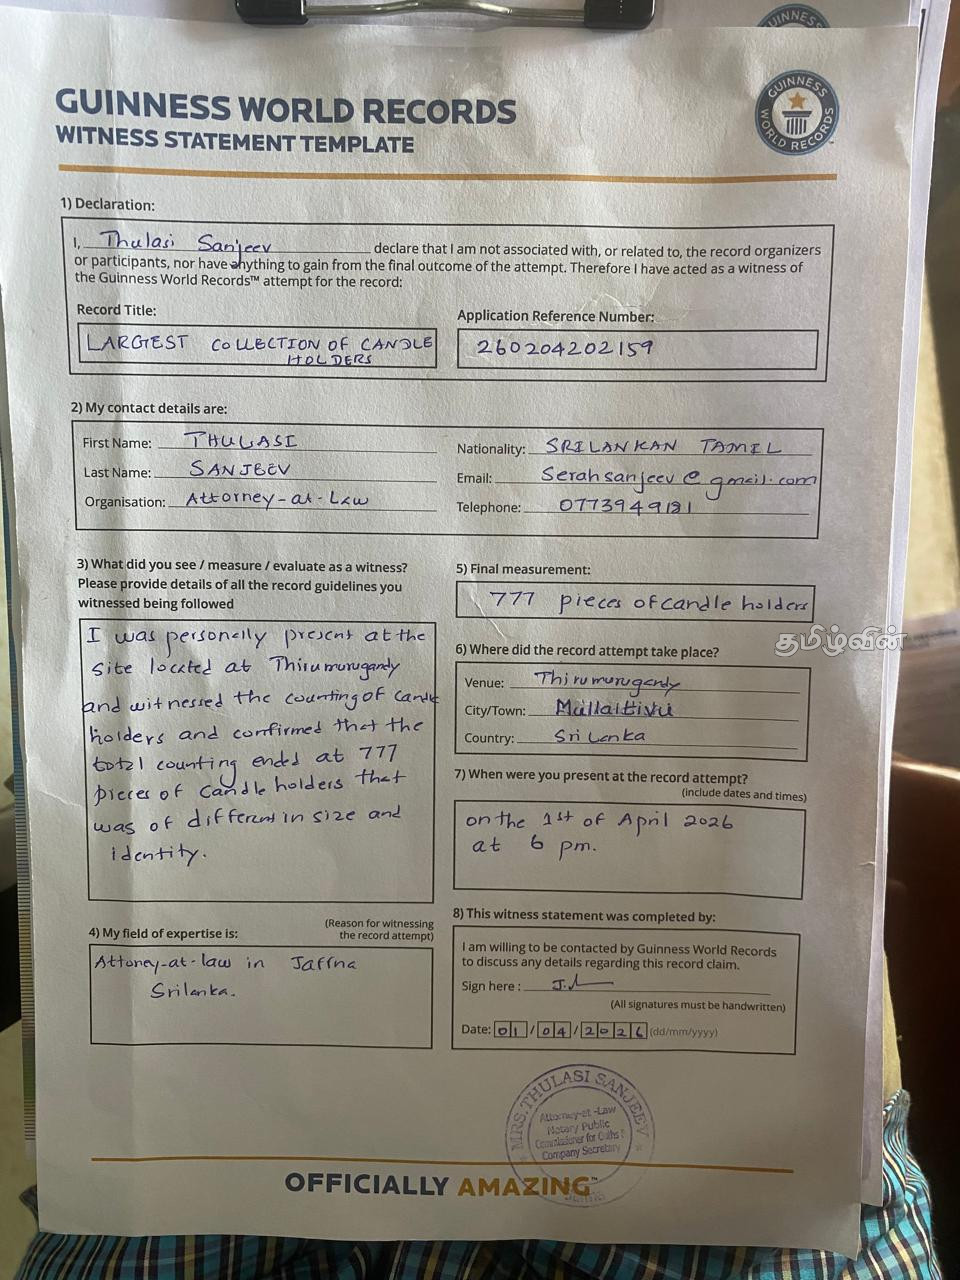 GUINNESS WORLD RECORDS
WITNESS STATEMENT TEMPLATE
GUINNESS
WORLD RECORDS
1) Declaration:
I, Thulasi Sanjeev declare that I am not associated with, or related to, the record organizers
or participants, nor have anything to gain from the final outcome of the attempt. Therefore I have acted as a witness of
the Guinness World Records™ attempt for the record:
Record Title:
LARGEST COLLECTION OF CANDLE
HOLDERS
Application Reference Number:
260204202159
2) My contact details are:
First Name: THULASI
Last Name: SANJEEV
Organisation: Attorney-at-Law
Nationality: SRILANKAN TAMIL
Email: Serahsanjeev@gmail.com
Telephone: 0773949181
3) What did you see / measure / evaluate as a witness?
Please provide details of all the record guidelines you
witnessed being followed
I was personally present at the
site located at Thirumurugandy
and witnessed the counting of candle
holders and confirmed that the
total counting ended at 777
pieces of candle holders that
was of different in size and
identity.
4) My field of expertise is:
(Reason for witnessing
the record attempt)
Attoney-at-law in Jaffna
Srilanka.
5) Final measurement:
777 pieces of candle holders
தமிழ்வின்
6) Where did the record attempt take place?
Venue: Thirumurugandy
City/Town: Mullaitivu
Country: Sri Lanka
7) When were you present at the record attempt?
(include dates and times)
on the 1st of April 2026
at 6 pm.
8) This witness statement was completed by:
I am willing to be contacted by Guinness World Records
to discuss any details regarding this record claim.
Sign here :
(All signatures must be handwritten)
Date: 01/04/2026 (dd/mm/yyyy)
MRS. THULASI SANJEEV
Attorney-at-Law
Notary Public
Commissioner for Oaths &
Company Secretary
OFFICIALLY AMAZING™